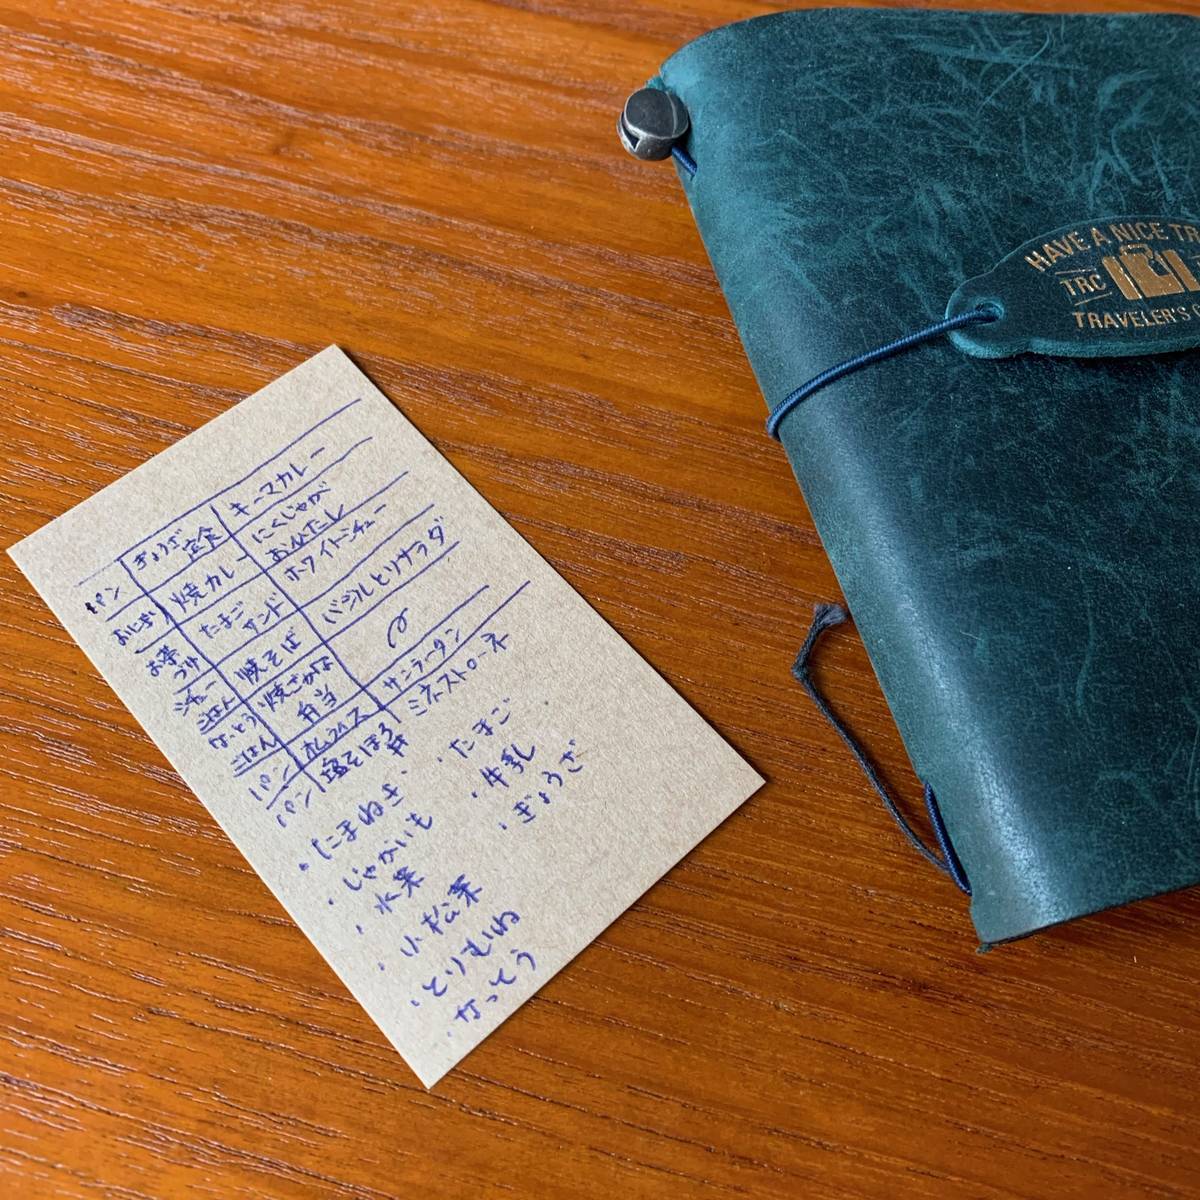 パン ぎょうざ定食 キーマカレー
おにぎり 焼カレー にくじゃが おひたし
お茶づけ たまごサンド ホワイトシチュー
シチューごはん 焼そば バジルとりサラダ
なっとうごはん 焼さかな弁当
パン オムライス サニラータン
パン 塩そぼろ丼 ミネストローネ
・たまねぎ
・じゃがいも
・水菜
・小松菜
・とりむね
・なっとう
・たまご
・牛乳
・ぎょうざ
HAVE A NICE TR
TRC
TRAVELER'S C